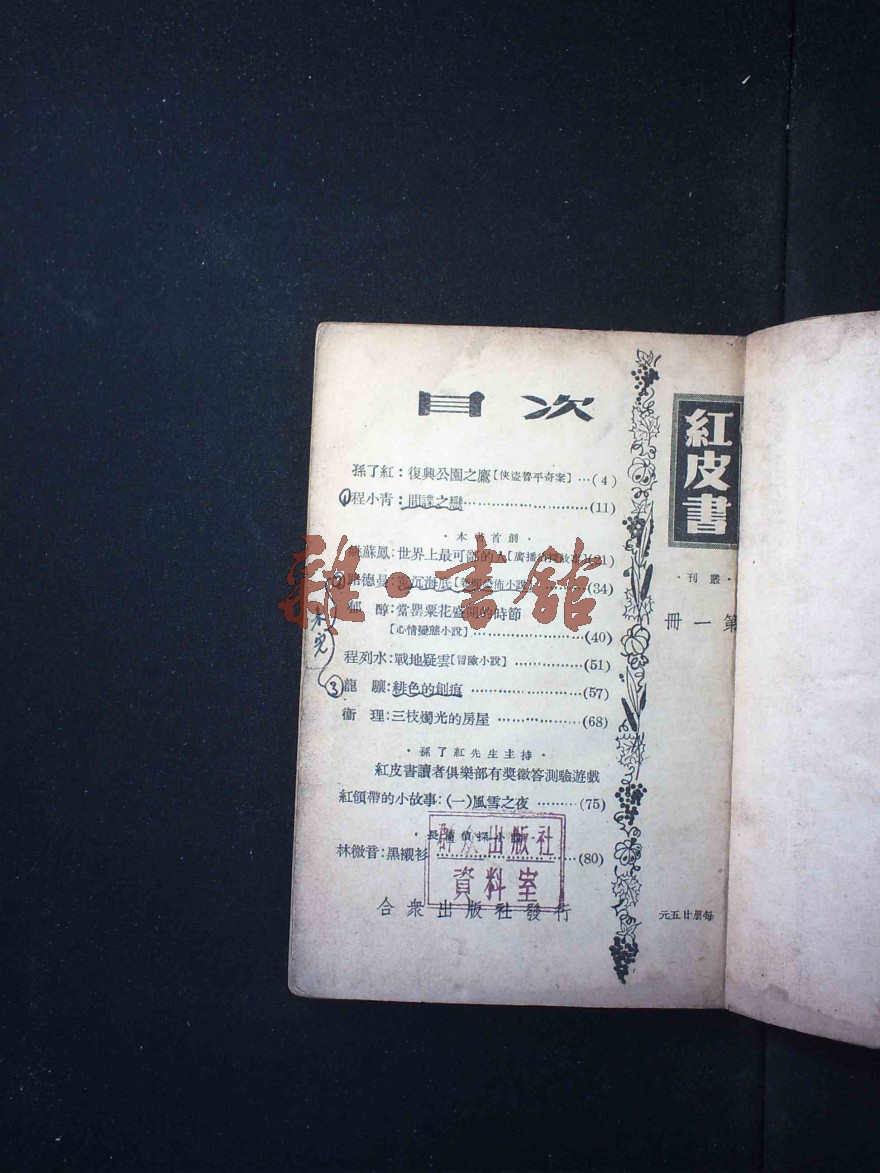 目次
孫了紅：復興公園之鷹［俠盜魯平奇案］…（4）
①程小青：間諜之戀……………………（11）
・本書首創・
姚蘇鳳：世界上最可 的人［廣播 ］（21）
②路德曼： 沉海底［ 怖小說］（34）
郁 醇：當罌粟花盛開的時節
［心情變態小說］……………………（40）
程列水：戰地疑雲［冒險小說］…………（51）
③龍驤：緋色的創痕……………………（57）
衞理：三枝燭光的房屋………………（68）
・孫了紅先生主持・
紅皮書讀者俱樂部有獎徵答測驗遊戲
紅領帶的小故事：（一）風雪之夜………（75）
・長篇偵探 ・
林微音：黑襯衫……………………（80）
合衆出版社發行
紅皮書
・叢刊・
第一冊
每册廿五元
未完
群众出版社
資料室
雜・書館